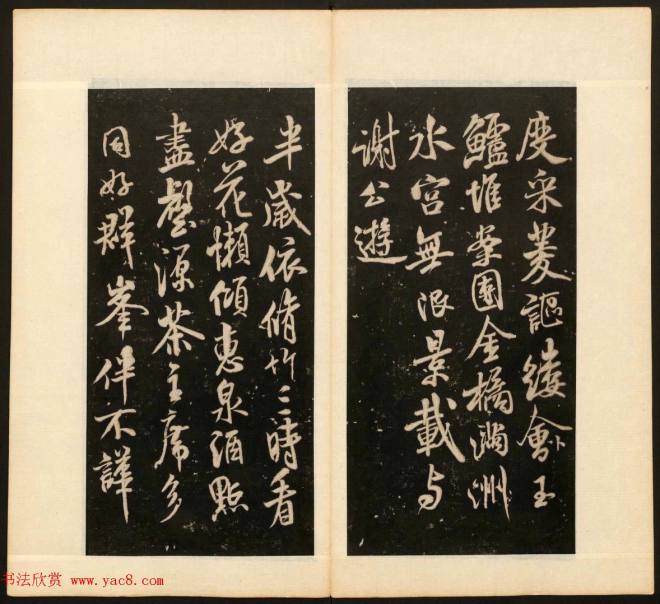 度采菱謳縷會玉
鱸堆案團金橘滿洲
水宮無限景載与
謝公遊
半歲依脩竹三時看
好花懶傾惠泉酒點
盡壑源茶主席多
同好群峯伴不譁
书法欣赏 www.yac8.com